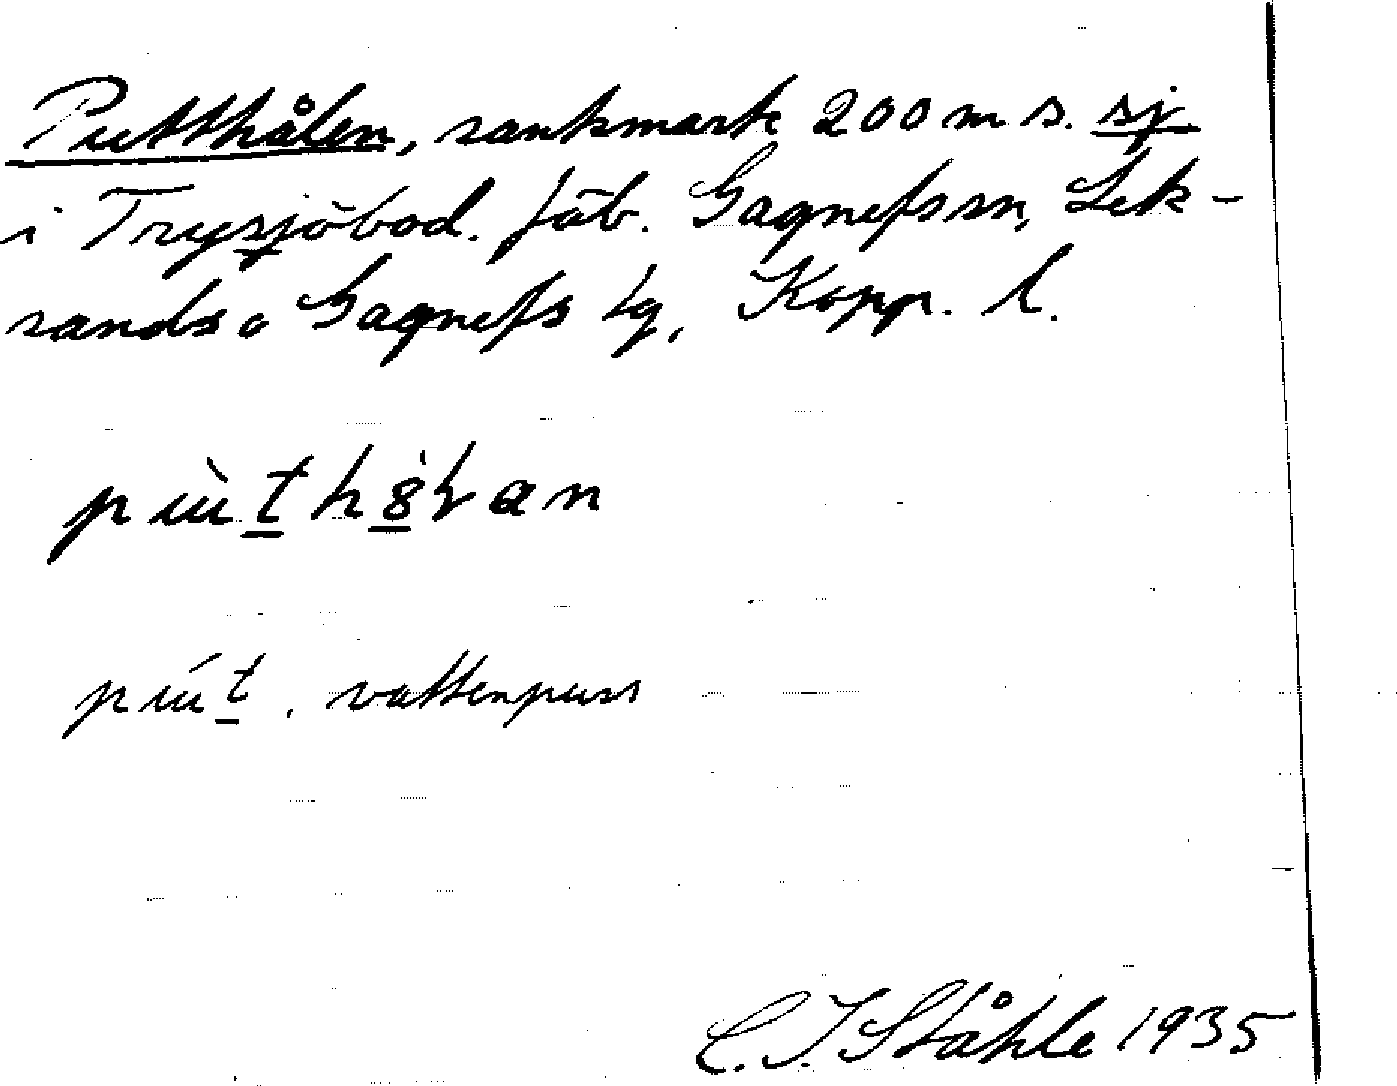 Putthålen, sankmark 200 m s. sj.
i Trysjöbod. fäb. Gagnefs sn, Lek-
sands o Gagnefs tg, Kopp. l.
pùt
pút. vattenpuss
C. I. Ståhle 1935